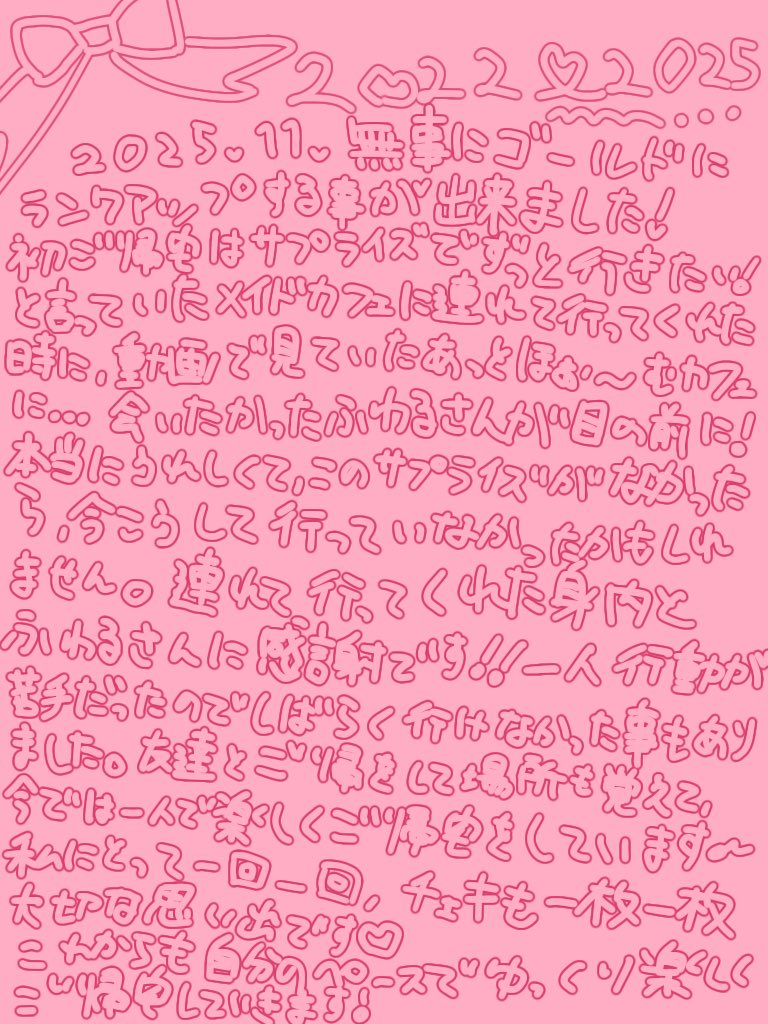 2022♡2025...
2025.♡11.♡無事にゴールドに
ランクアップする事が♡出来ました!
初ご帰宅はサプライズでずっと行きたい!
と言っていたメイドカフェに連れて行ってくれた
時に,動画で見ていたあっとほぉ〜むカフェ
に... 会いたかったふわるさんが目の前に!
本当にうれしくて,このサプライズがなかった
ら,今こうして行っていなかったかもしれ
ません。連れて行ってくれた身内と
ふわるさんに感謝です!!一人行動が
苦手だったのでしばらく行けなかった事もあり
ました。友達とご帰宅をして場所を覚えて,
今では一人で楽しくご帰宅をしています〜
私にとって一回一回,チェキも一枚一枚
大切な思い出です♡
これからも自分のペースでゆっくり楽しく
ご帰宅していきます!